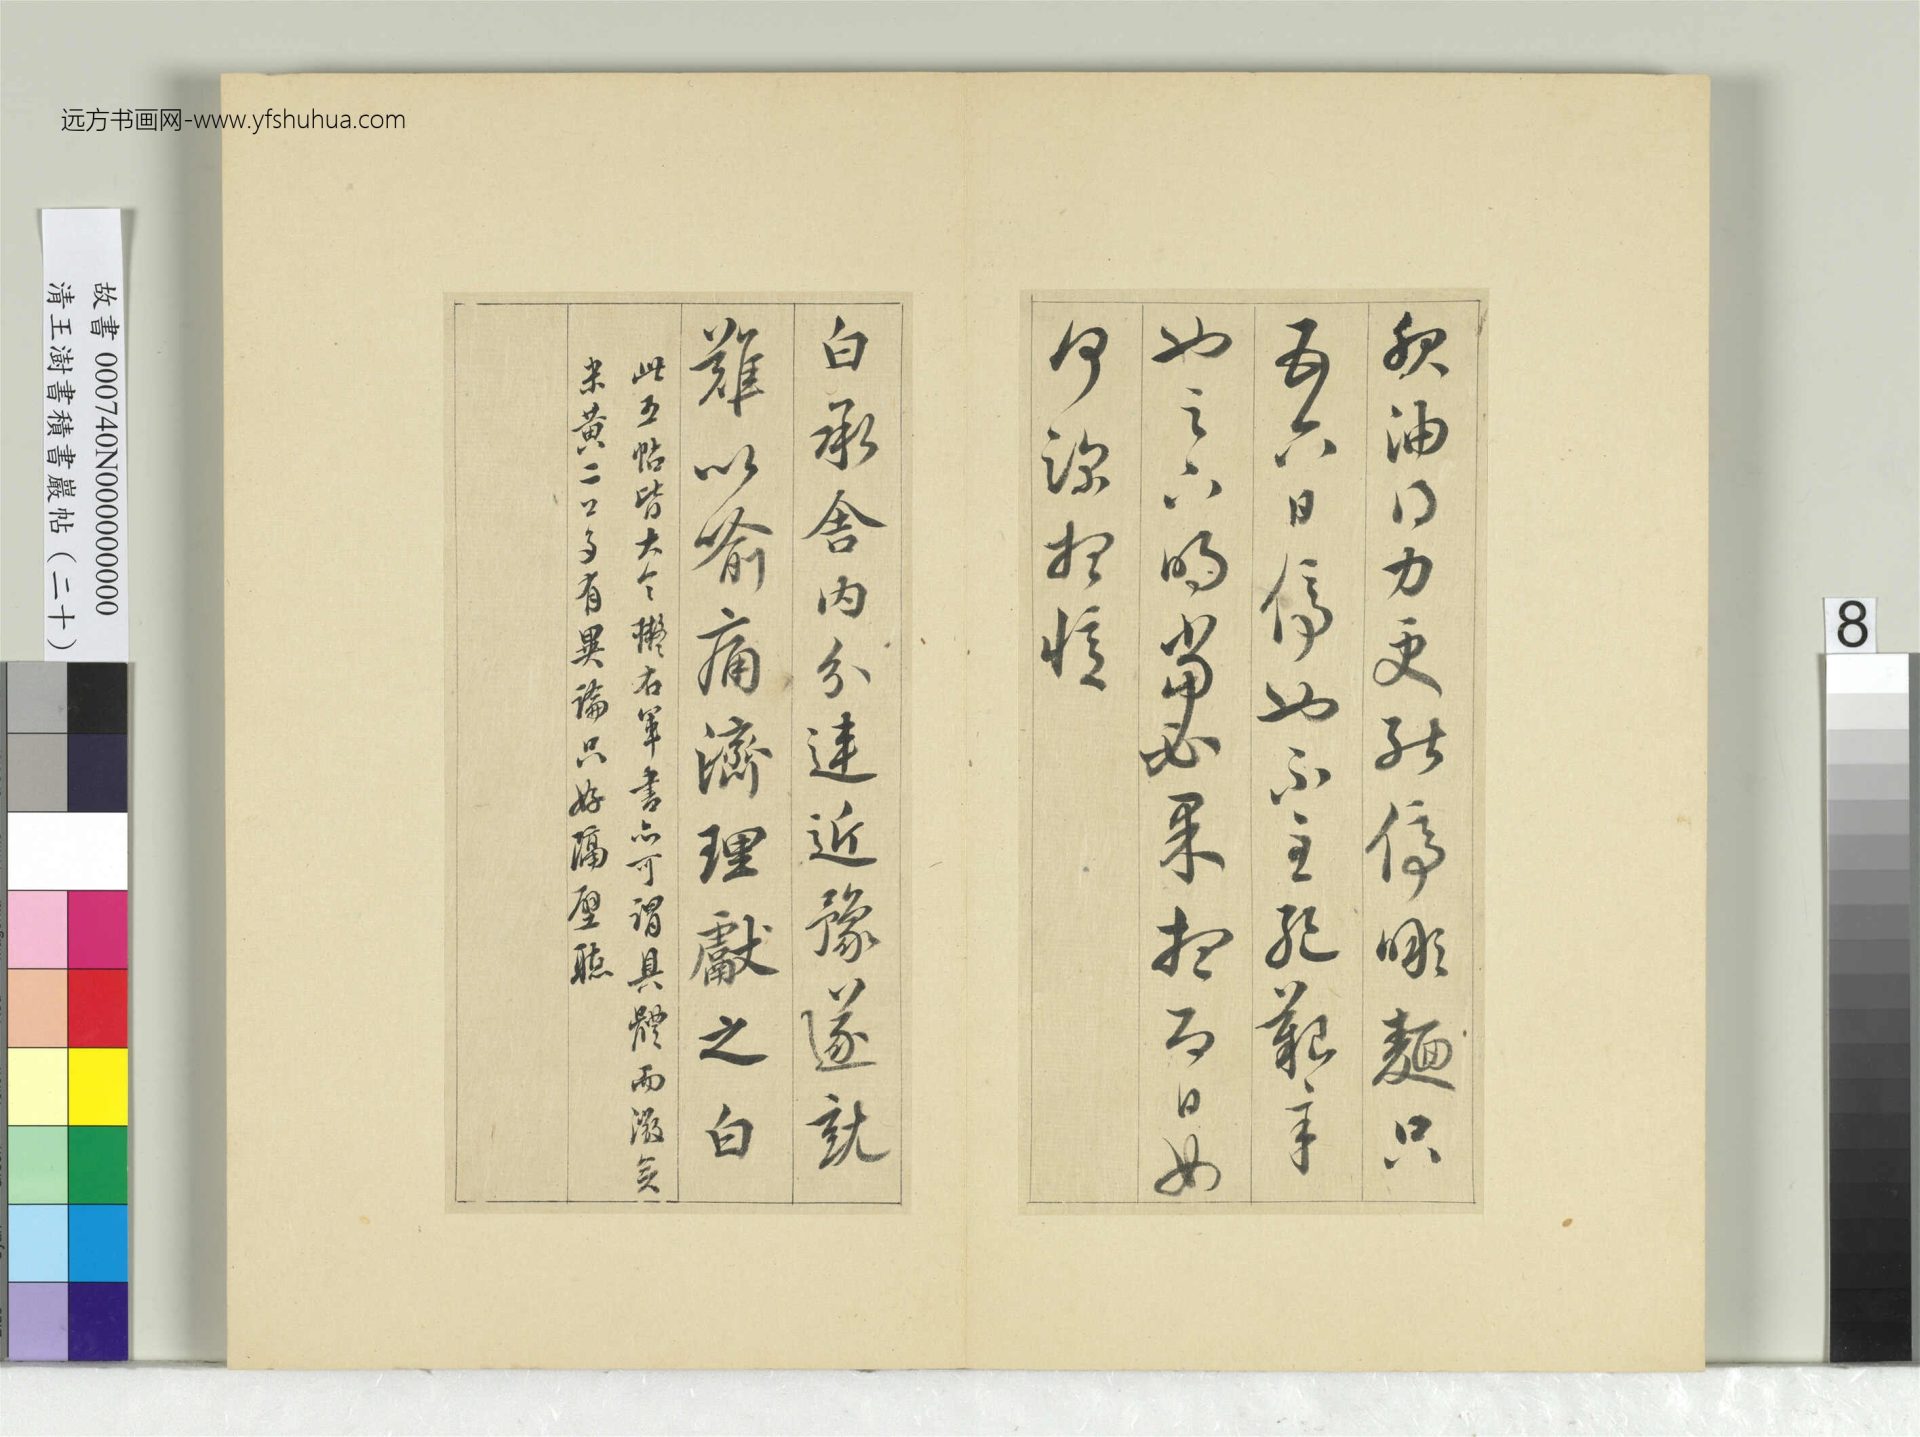 远方书画网-www.yfshuhua.com
服油得力更能停噉麵只
五六日停也不至絕艱辛
也足下明當必果想即日如
何深想憶
白承舍內分違近豫遂就
難以喻痛濟理獻之白
此五帖皆大令擬右軍書亦可謂具體而微矣
米黃二公多有異論只好隔壁聽
故書 000740N000000000
清王澍書積書巖帖（二十）
8